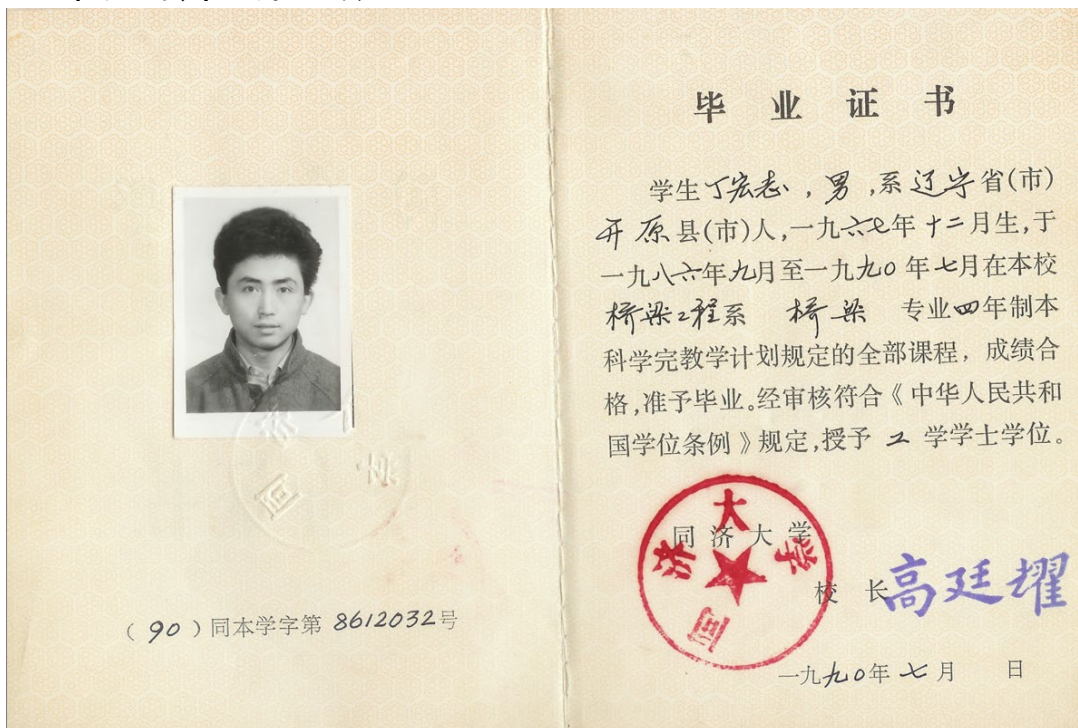 （90）同本学字第 8612032号
毕 业 证 书
学生丁宏志，男，系辽宁省(市)
开原县(市)人，一九六七年十二月生，于
一九八六年九月至一九九0年七月在本校
桥梁工程系 桥梁 专业四年制本
科学完教学计划规定的全部课程，成绩合
格，准予毕业。经审核符合《中华人民共和
国学位条例》规定，授予 工 学学士学位。
同济大学
同济大学
校 长 高廷耀
一九九0年七月 日